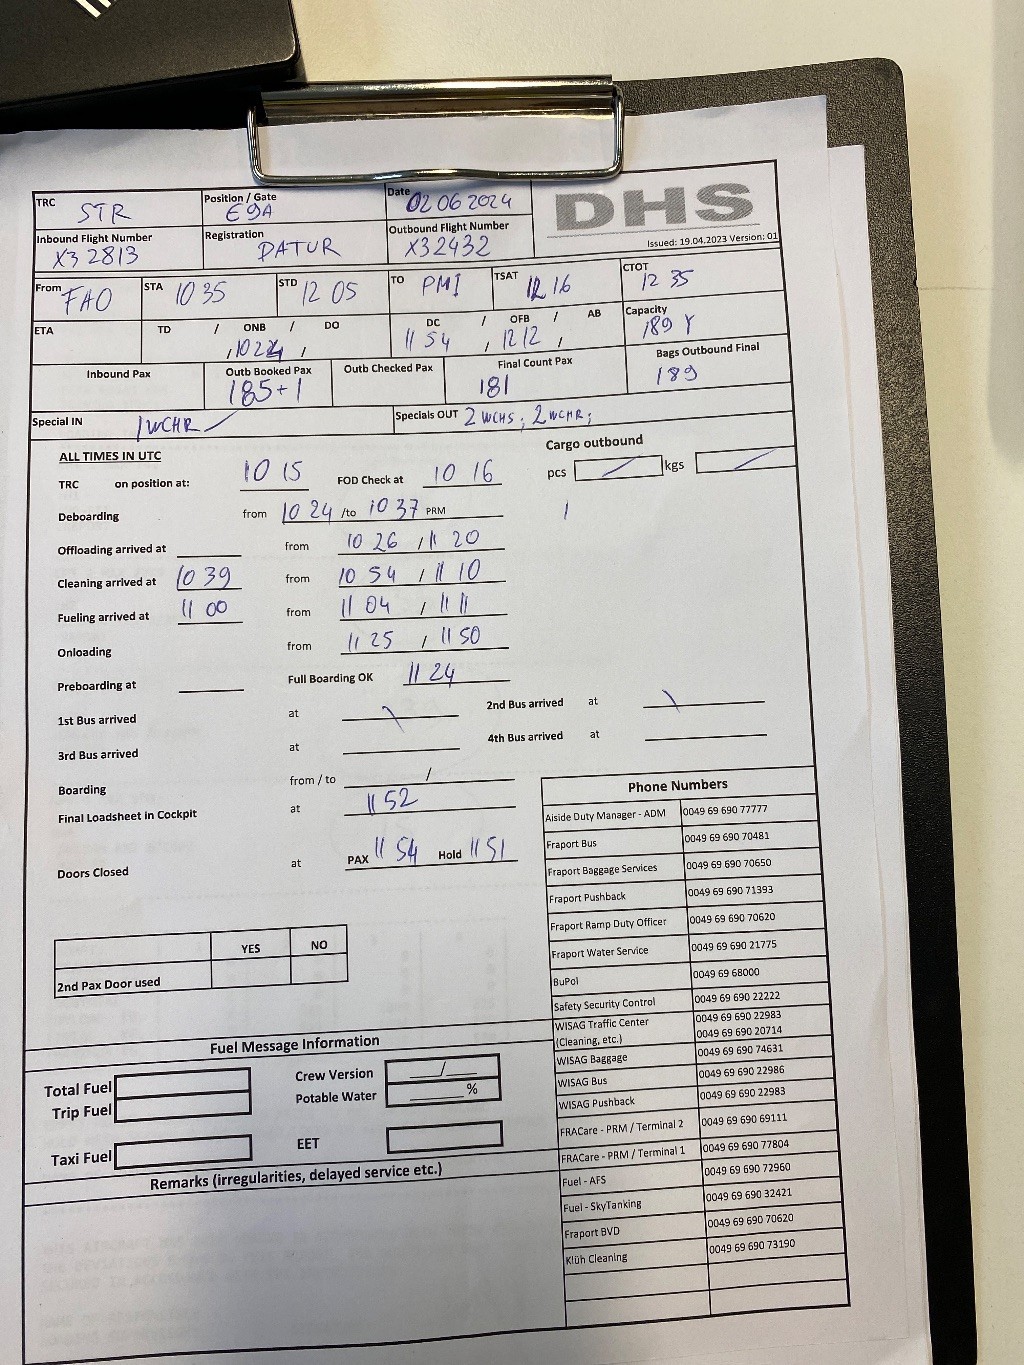 TRC STR Position / Gate E9A Date 02 06 2024 DHS
Inbound Flight Number X3 2813 Registration DATUR Outbound Flight Number X3 2432 Issued: 19.04.2023 Version: 01
From FAO STA 10 35 STD 12 05 TO PMI TSAT 12 16 CTOT 12 35
ETA TD / ONB / DO , 1024 , DC / OFB / AB 11 54 , 12 12 , Capacity 189 Y
Inbound Pax Outb Booked Pax 185+1 Outb Checked Pax Final Count Pax 181 Bags Outbound Final 189
Special IN 1 WCHR Specials OUT 2 WCHS; 2 WCHR;
ALL TIMES IN UTC Cargo outbound
TRC on position at: 10 15 FOD Check at 10 16 pcs / kgs /
Deboarding from 10 24 /to 10 37 PRM
Offloading arrived at from 10 26 , 11 20
Cleaning arrived at 10 39 from 10 54 / 11 10
Fueling arrived at 11 00 from 11 04 , 11 11
Onloading from 11 25 / 11 50
Preboarding at Full Boarding OK 11 24
1st Bus arrived at 2nd Bus arrived at
3rd Bus arrived at 4th Bus arrived at
Boarding from / to /
Final Loadsheet in Cockpit at 11 52
Doors Closed at PAX 11 54 Hold 11 51
YES NO
2nd Pax Door used
Phone Numbers
Aiside Duty Manager - ADM 0049 69 690 77777
Fraport Bus 0049 69 690 70481
Fraport Baggage Services 0049 69 690 70650
Fraport Pushback 0049 69 690 71393
Fraport Ramp Duty Officer 0049 69 690 70620
Fraport Water Service 0049 69 690 21775
BuPol 0049 69 68000
Safety Security Control 0049 69 690 22222
WISAG Traffic Center 0049 69 690 22983
(Cleaning, etc.) 0049 69 690 20714
WISAG Baggage 0049 69 690 74631
WISAG Bus 0049 69 690 22986
WISAG Pushback 0049 69 690 22983
FRACare - PRM / Terminal 2 0049 69 690 69111
FRACare - PRM / Terminal 1 0049 69 690 77804
Fuel - AFS 0049 69 690 72960
Fuel - SkyTanking 0049 69 690 32421
Fraport BVD 0049 69 690 70620
Klüh Cleaning 0049 69 690 73190
Fuel Message Information
Total Fuel Crew Version /
Trip Fuel Potable Water %
Taxi Fuel EET
Remarks (irregularities, delayed service etc.)